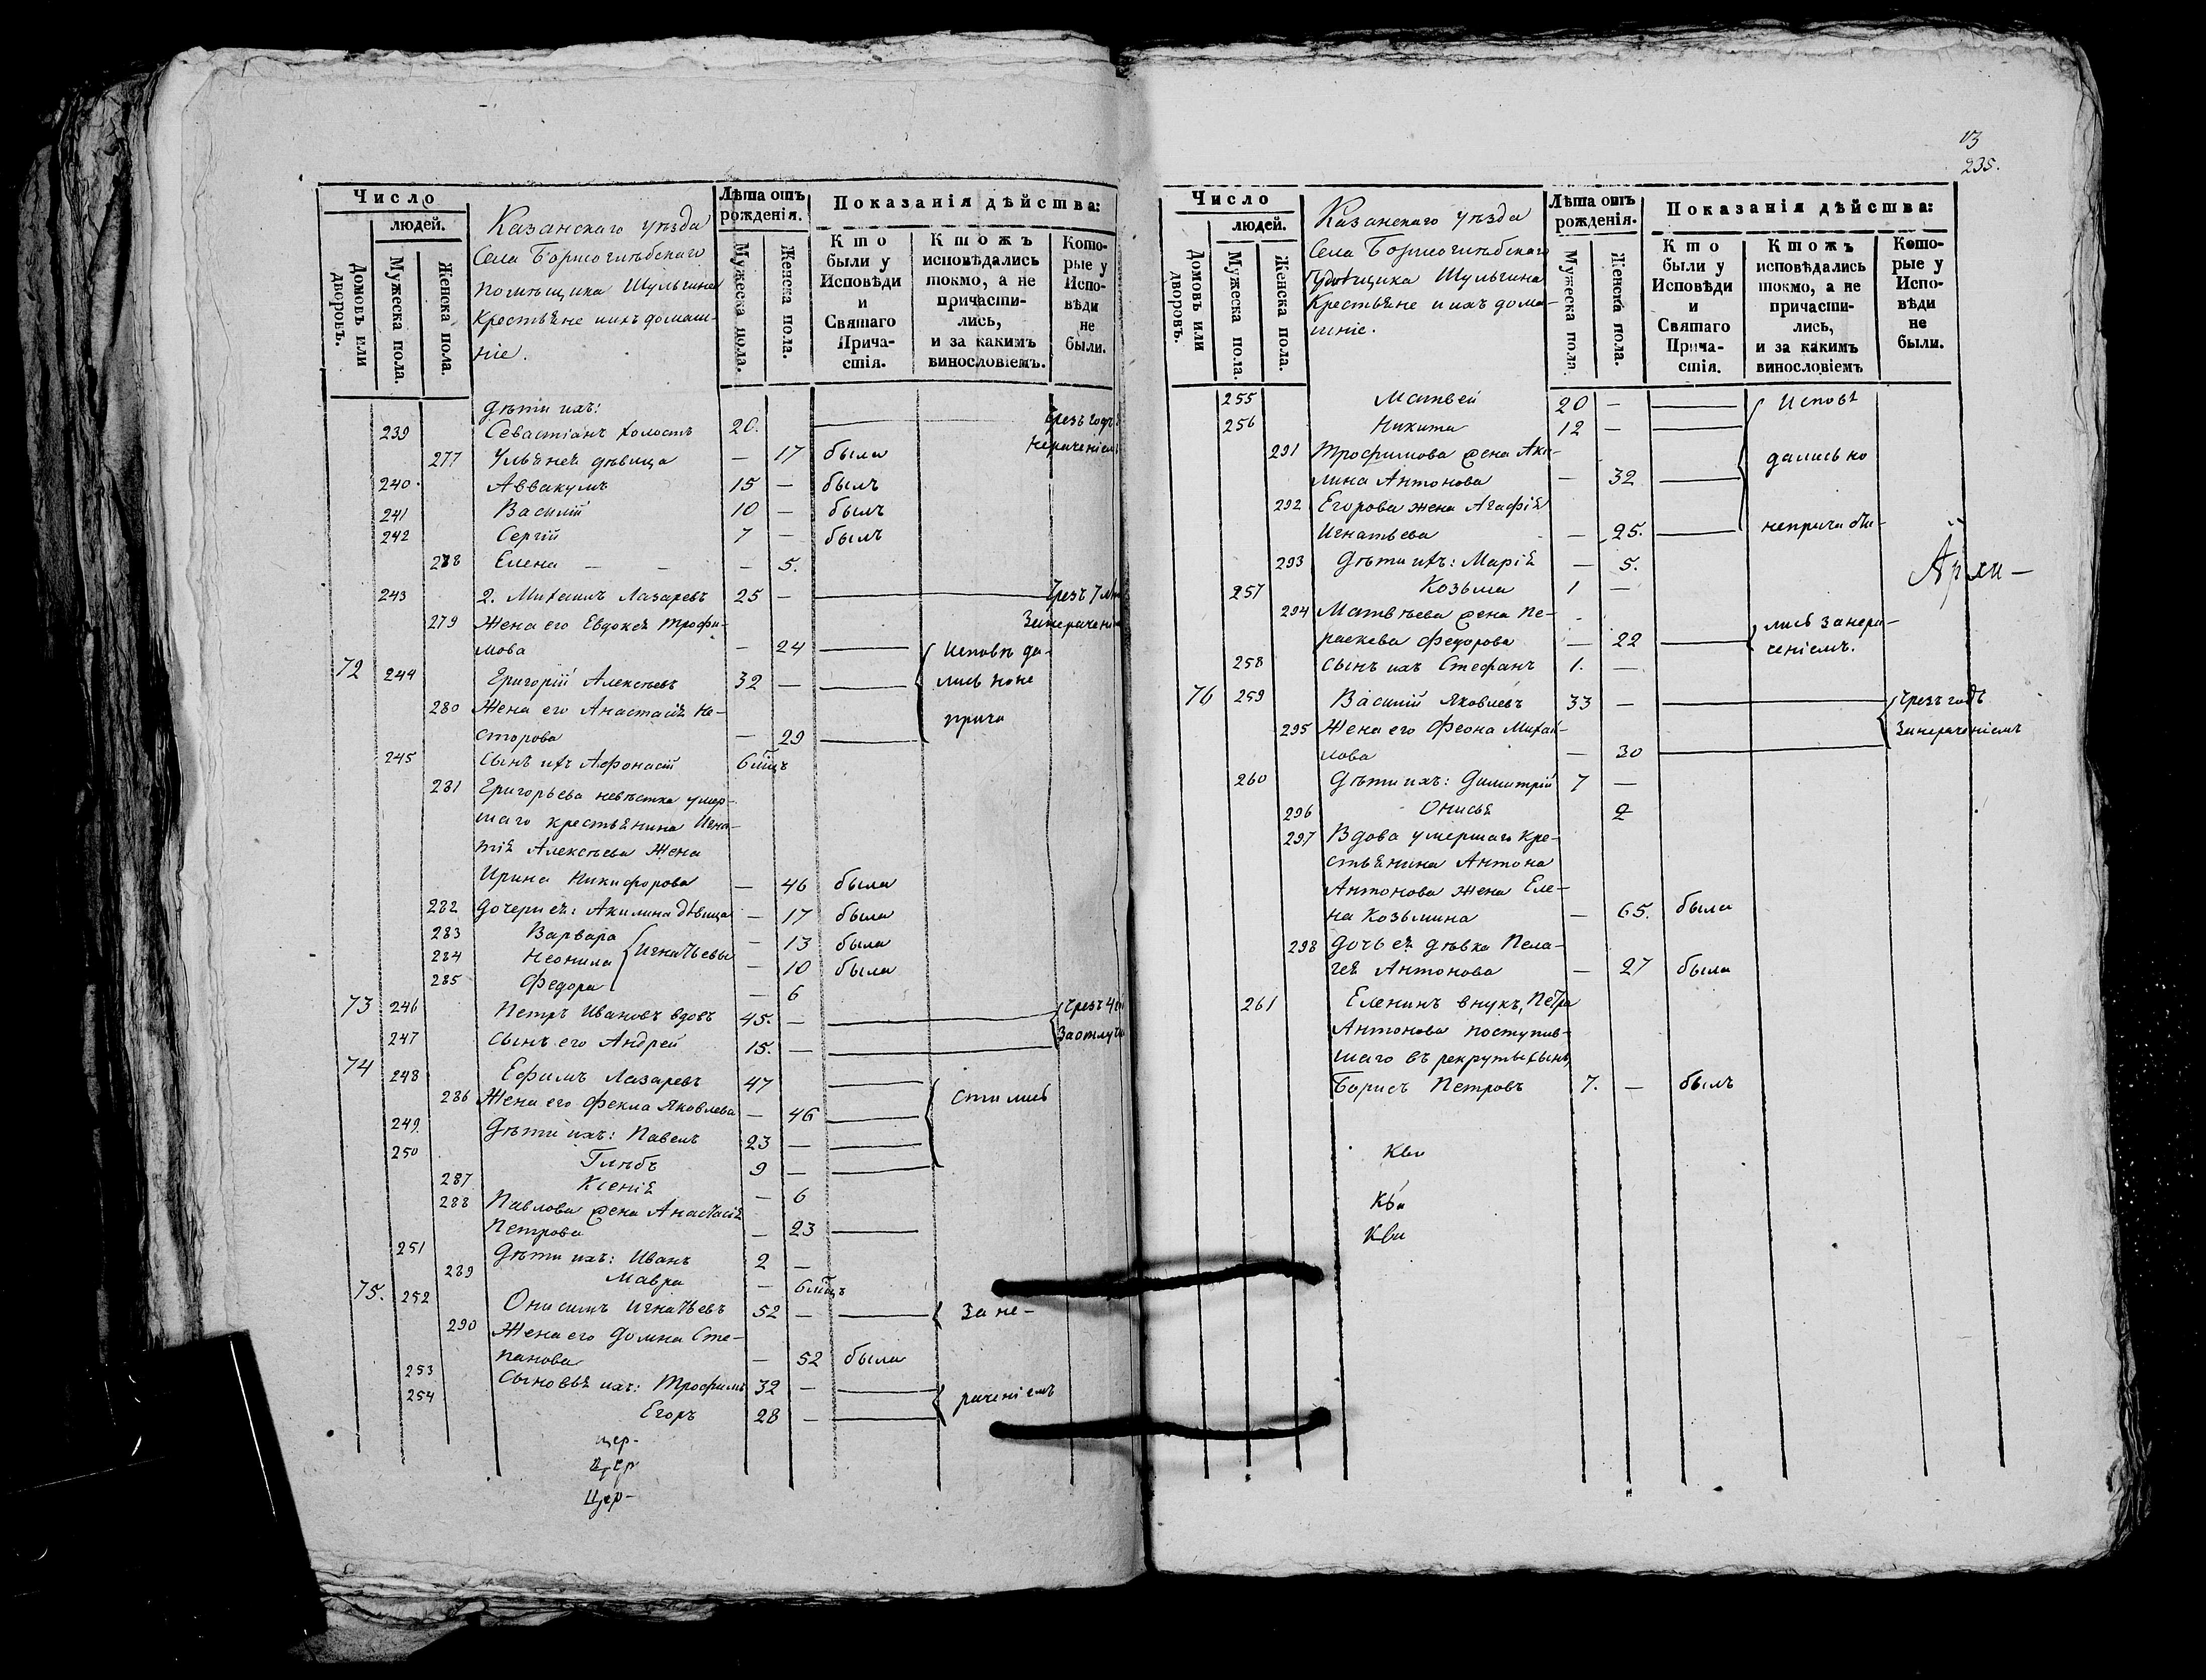 Число
людей.
Домовъ или дворовъ.
Мужеска пола.
Женска пола.
Казанскаго уѣзда
Села Борисоглѣбскаго
помѣщика Шульгина
Крестьяне и ихъ домаш-
ніе.
Лѣта отъ рожденія.
Мужеска пола.
Женска пола.
Показанія дѣйства:
Кто были у Исповѣди и Святаго Прича-стія.
Ктожъ исповѣдались токмо, а не причасти-лись, и за какимъ винословіемъ.
Кото-рые у Испо-вѣди не были.
дѣти ихъ:
239 Севастіанъ холостъ 20. Чрезъ годъ
277 Ульянея дѣвица — 17 была нераченіемъ
240. Аввакумъ 15 — былъ
241 Василій 10 — былъ
242 Сергій 7 — былъ
278 Елена — — — 5.
243 2. Михаилъ Лазаревъ 25 — Чрезъ 7
279 Жена его Евдокея Трофи-
мова — 24 Исповѣда-
72 244 Григорій Алексѣевъ 32 — лись но не
280 Жена его Анастасія Не-
сторова — 29 прича
245 Сынъ ихъ Афонасій 6 мцъ
281 Григорьева невѣстка умер-
шаго крестьянина Игна-
тія Алексѣева жена
Ирина Никифорова — 46 была
282 Дочери ея: Акилина дѣвица — 17 была
283 Варвара Игнатьевы — 13 была
284 Неонила — 10 была
285 Федора — 6
73 246 Петръ Ивановъ вдовъ 45. — Чрезъ 4
247 Сынъ его Андрей 15. — За отлуч
74 248 Ефимъ Лазаревъ 47
286 Жена его Фекла Яковлева — 46 стились
249. Дѣти ихъ: Павелъ 23 —
250 Глѣбъ 9 —
287 Ксенія — 6
288 Павлова жена Анастасія
Петрова — 23
251 Дѣти ихъ: Иванъ 2 —
289 Мавра — 6 мцъ
75. 252 Онисимъ Игнатьевъ 52 — За не-
290 Жена его Домна Сте-
панова — 52 была
253 Сыновья ихъ: Трофимъ 32 — раченіемъ
254 Егоръ 28 —
цер-
Цер
Цер-
13
235.
Число
людей.
Домовъ или дворовъ.
Мужеска пола.
Женска пола.
Казанскаго уѣзда
Села Борисоглѣбскаго
Шульгина
Крестьяне и ихъ дома-
шніе.
Лѣта отъ рожденія.
Мужеска пола.
Женска пола.
Показанія дѣйства:
Кто были у Исповѣди и Святаго Прича-стія.
Ктожъ исповѣдались токмо, а не причасти-лись, и за какимъ винословіемъ
Кото-рые у Испо-вѣди не были.
255 Матвей 20 — Исповѣ
256 Никита 12 —
291 Трофимова жена Аки- дались но
лина Антонова — 32
292 Егорова жена Агафія
Игнатьева — 25. непричасти-
293 Дѣти ихъ: Марія — 5.
Архи-
257 Козьма 1 —
294 Матвѣева жена Пе-
раскева Федорова — 22 лись за нера-
258 сынъ ихъ Стефанъ 1. — ченіемъ.
76 259 Василій Яковлевъ 33 — Чрезъ годъ
295 Жена его Феона Михай- За нераченіемъ
лова — 30
260 Дѣти ихъ: Димитрій 7 —
296 Онисья 2
297 Вдова умершаго кре-
стьянина Антона
Антонова жена Еле-
на Козьмина — 65. была
298 Дочь ея дѣвка Пела-
гея Антонова — 27 была
261 Еленинъ внукъ, Петра
Антонова поступив-
шаго въ рекруты сынъ,
Борисъ Петровъ 7. — былъ